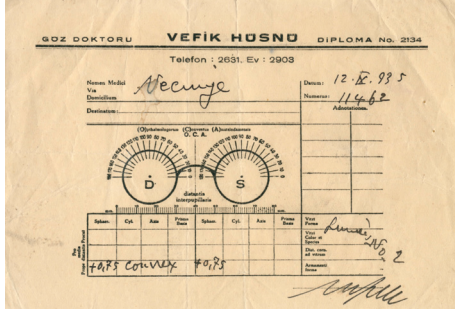 GÖZ DOKTORU VEFİK HÜSNÜ DİPLOMA No. 2134
Telefon : 2631. Ev : 2903
Nomen Medici
Via
Domicilium
Datum: 12. IX. 935
Numerus: 11462
Destinatum:
Adnotationes.
(O)phthalmologorum (C)onventus (A)mstelodamum
O. C. A.
D S
distantia
interpupillaris
Sphaer. Cyl. Axis Prisma Basis Sphaer. Cyl. Axis Prisma Basis
+0,75 convex +0,75
Vitri
Forma
Vitri
Color et
Species
No. 2
Dist. corn.
ad vitrum
Armamenti
forma